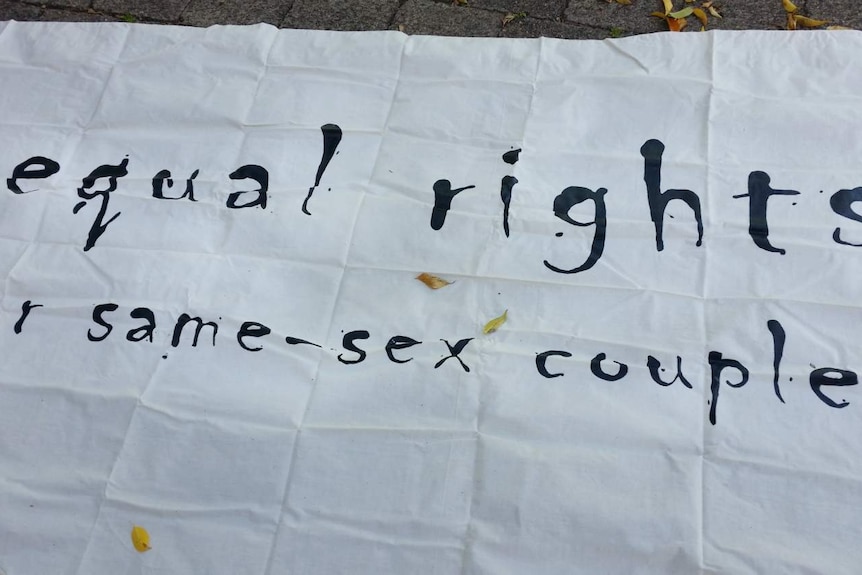 equal rights
r same-sex couple